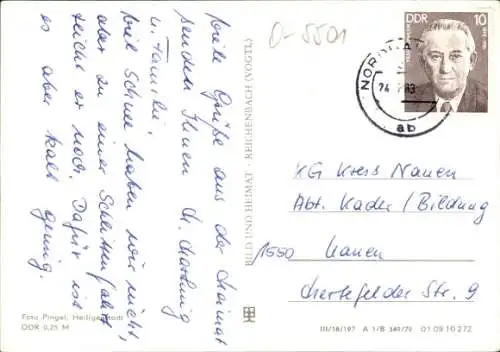 O-5501
viele Grüße aus der Heimat
senden Ihnen Ch. Hartung
u. Familie.
Viel Schnee haben wir nicht,
aber zu einer Schlittenfahrt
reicht er noch. Dafür ist
es aber kalt genug.
Foto Pingel, Heiligenstadt
DDR 0,25 M
BILD UND HEIMAT · REICHENBACH (VOGTL)
DDR 10
NOR
24
83
ab
KG Kreis Nauen
Abt. Kader/Bildung
1550 Nauen
Hertefelder Str. 9
III/18/197 A 1/B 349/79 01 09 10 272